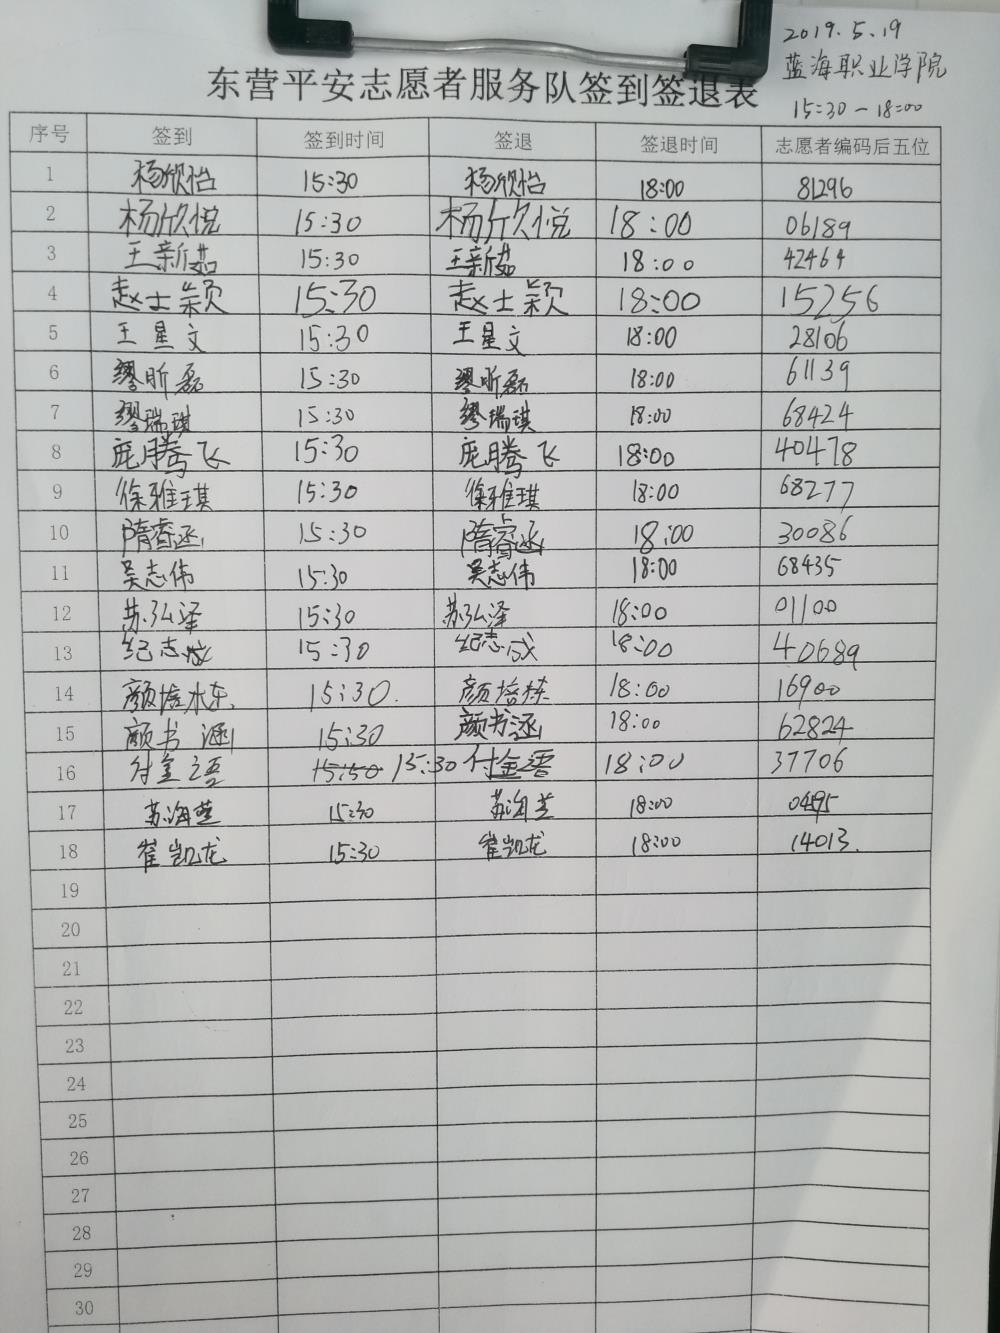 2019.5.19
蓝海职业学院
东营平安志愿者服务队签到签退表
15:30-18:00
序号 签到 签到时间 签退 签退时间 志愿者编码后五位
1 杨欣怡 15:30 杨欣怡 18:00 81296
2 杨欣悦 15:30 杨欣悦 18:00 06189
3 王新茹 15:30 王新茹 18:00 42464
4 赵士颖 15:30 赵士颖 18:00 15256
5 王星文 15:30 王星文 18:00 28106
6 缪昕磊 15:30 缪昕磊 18:00 61139
7 缪瑞琪 15:30 缪瑞琪 18:00 68424
8 庞腾飞 15:30 庞腾飞 18:00 40478
9 徐雅琪 15:30 徐雅琪 18:00 68277
10 隋睿涵 15:30 隋睿涵 18:00 30086
11 吴志伟 15:30 吴志伟 18:00 68435
12 苏弘泽 15:30 苏弘泽 18:00 01100
13 纪志成 15:30 纪志成 18:00 40689
14 颜培栋 15:30. 颜培栋 18:00 16900
15 颜书涵 15:30 颜书涵 18:00 62824
16 付金语 15:30 付金语 18:00 37706
17 苏海兰 15:30 苏海兰 18:00
18 崔凯龙 15:30 崔凯龙 18:00 14013.
19
20
21
22
23
24
25
26
27
28
29
30